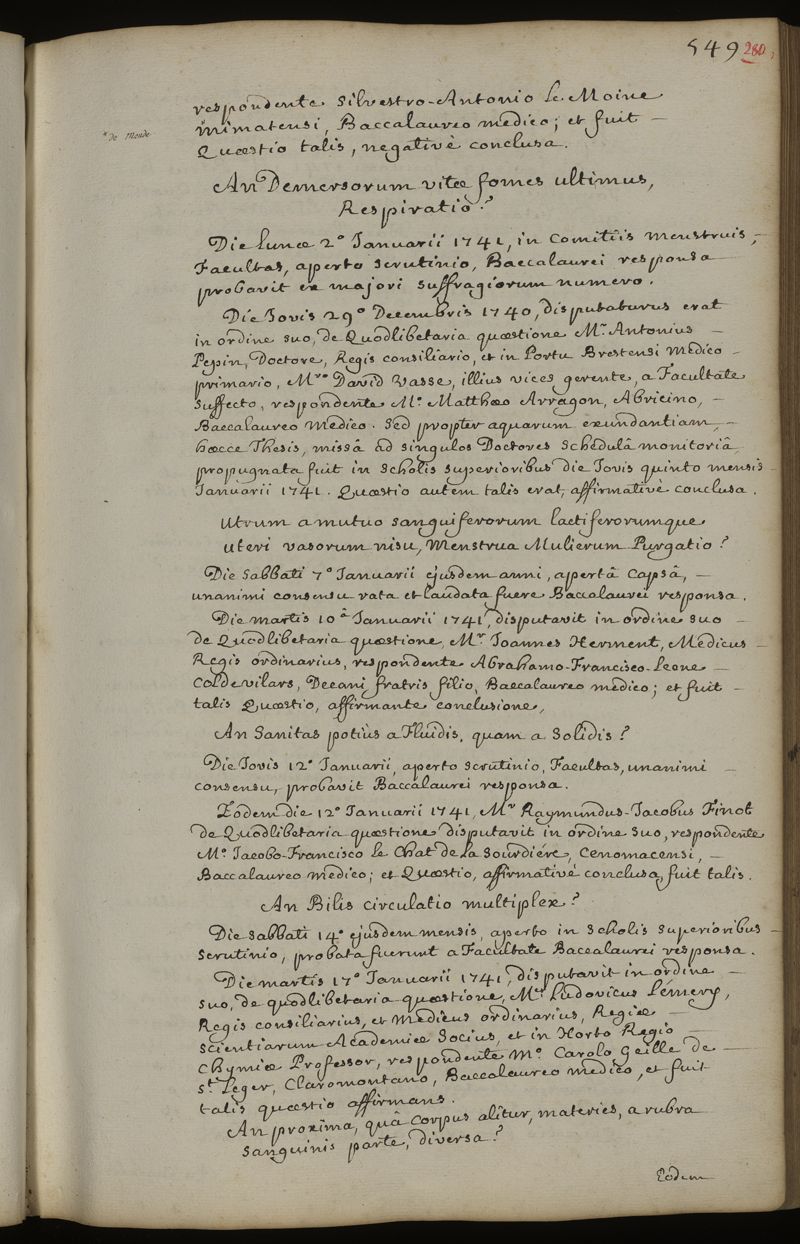 549 280,
respondente Silvestro-Antonio le Moine
* de Mende
mimatensi, Baccalaureo medico; et fuit —
Quæstio talis, negativè conclusa.
An Demersorum vitæ fomes ultimus,
Respiratio?
Die Lunæ 2ª Ianuarii 1741, in Comitiis menstruis, —
Facultas, aperto scrutinio, Baccalaurei responsa
probavit ex majori suffragiorum numero.
Die Iovis 29ª Decembris 1740, disputaturus erat
in ordine suo, de Quodlibetaria quæstione Mr. Antonius —
Pepin, Doctore, Regis consiliario, et in Portu Brestensi Medico —
primario, Mro David Vasse, illius vices gerente, a Facultate
suffecto, respondente Mo. Matthæo Arragon, Abricino, —
Baccalaureo medico. Sed propter aquarum exundantiam, —
hæcce Thesis, missâ ad singulos Doctores schedulâ monitoriâ
propugnata fuit in scholis superioribus die Iovis quinto mensis —
Ianuarii 1741. Quæstio autem talis erat, affirmativè conclusa.
Utrum a mutuo sanguiferorum lactiferorumque
uteri vasorum nisu, Menstrua Mulierum Purgatio?
Die Sabbati 7ª Ianuarii ejusdem anni, apertâ Capsâ, —
unanimi consensu rata et laudata fuere Baccalaurei responsa.
Die martis 10â Ianuarii 1741, disputavit in ordine suo —
de Quodlibetaria quæstione, Mr. Ioannes Herment, Medicus —
Regis ordinarius, respondente Abrahamo-Francisco-Leone —
Coldevilars, Decani fratris filio, Baccalaureo medico; et fuit —
talis Quæstio, affirmante conclusione,
An Sanitas potiùs a Fluidis, quam a Solidis?
Die Iovis 12ª Ianuarii, aperto scrutinio, Facultas, unanimi —
consensu, probavit Baccalaurei responsa.
Eodem die 12ª Ianuarii 1741, Mr Raymundus-Iacobus Finot
de Quodlibetaria quæstione disputavit in ordine suo, respondente
Mo. Iacobo-Francisco le Chat de la Sourdiére, Cenomacensi, —
Baccalaureo medico; et Quæstio, affirmativè conclusa, fuit talis.
An Bilis circulatio multiplex?
Die Sabbati 14ª ejusdem mensis, aperto in Scholis superioribus —
scrutinio, probata fuerunt a Facultate Baccalaurei responsa.
Die martis 17ª Ianuarii 1741, disputavit in ordine —
suo, de quodlibetaria quæstione, Mr. Ludovicus Lémery,
Regis consiliarius, et Medicus ordinarius, Regiæ —
scientiarum Academiæ Socius, et in Horto Regio —
Chymiæ Professor, respondente Mo. Carolo Geille de —
St. Leger, Claromontano, Baccalaureo medico, et fuit
talis quæstio affirmans.
An proxima, quâ Corpus alitur, materies, a rubra
sanguinis parte, diversa?
Eodem